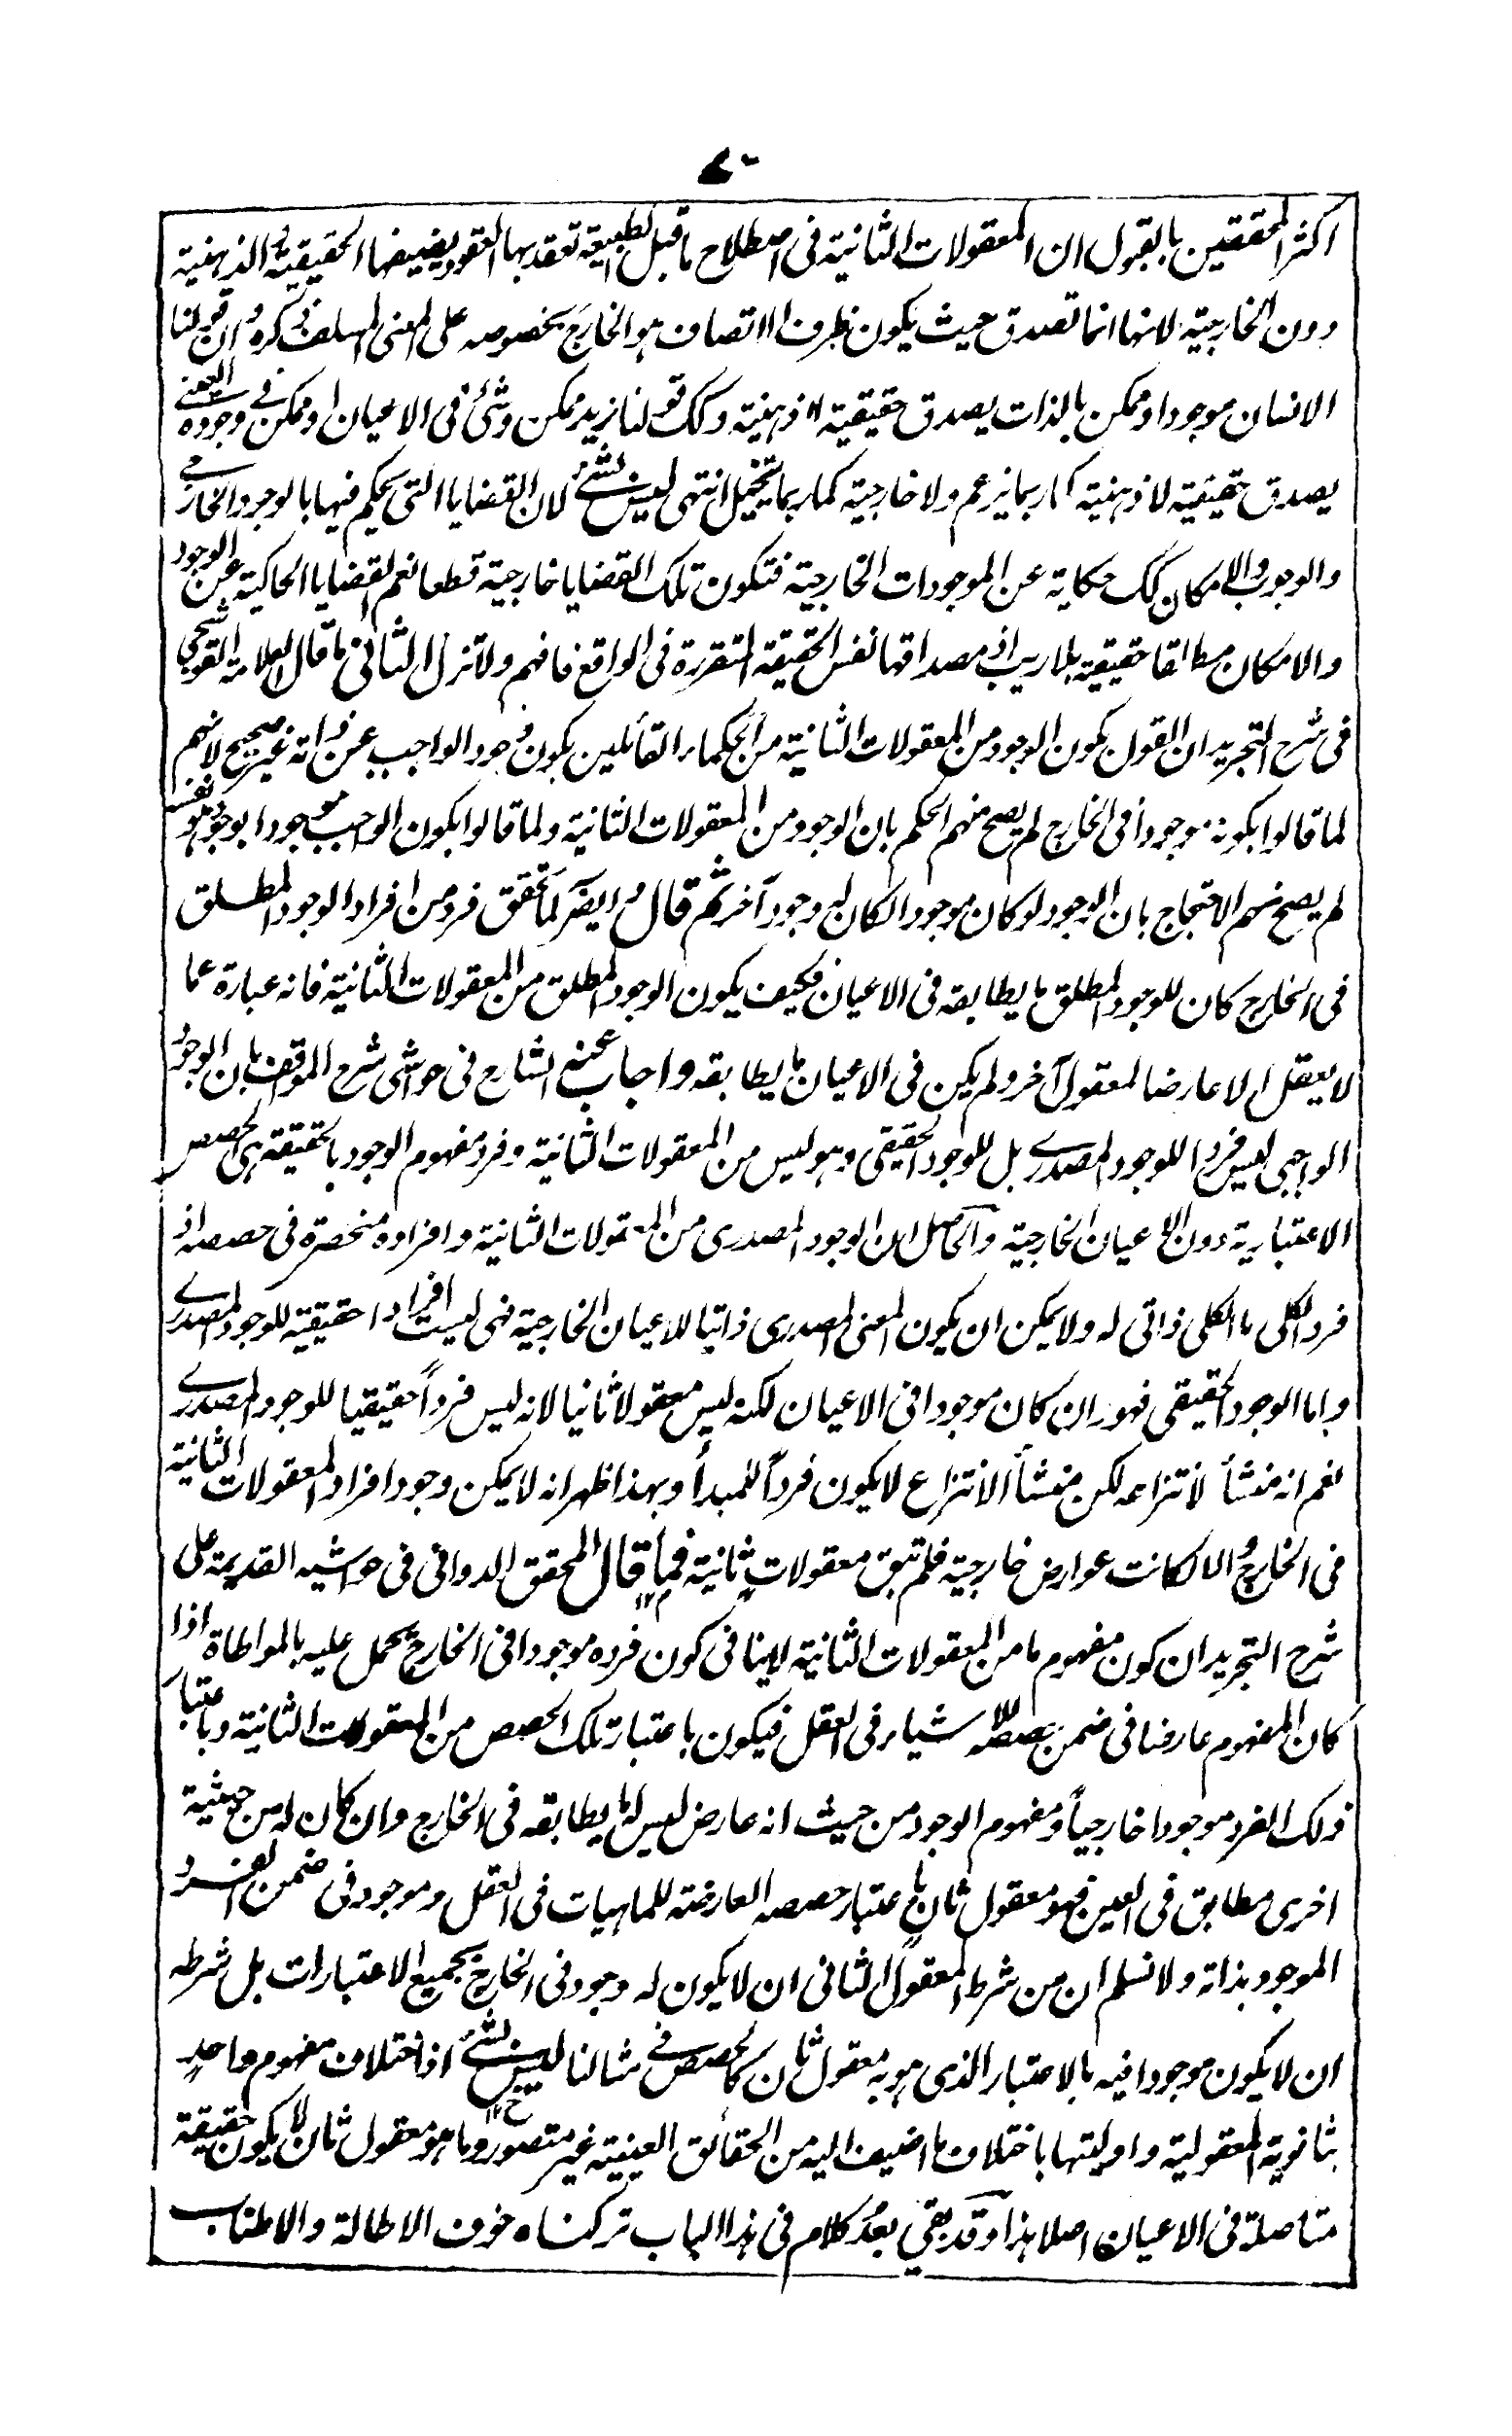 ٧٠
اكثر المحققين بالقول ان المعقولات الثانية فى اصطلاح ما قبل الطبيعة تعقد بها العقود بضيضها الحقيقية والذهنية
دون الخارجية لانها انما تصدق حيث يكون ظرف الاتصاف هو الخارج بخصوصه على المعنى السلف ذكره وان قولنا
الانسان موجود او ممكن بالذات يصدق حقيقية لا ذهنية وكك قولنا زيد ممكن وشئ فى الاعيان او ممكن فى وجوده العينى
يصدق حقيقية لا ذهنية كما ربما يزعم ولا خارجية كما ربما يتخيل انتهى ليس بشئ لان القضايا التى يحكم فيها بالوجود الخارجى
والوجوب والامكان كك حكاية عن الموجودات الخارجية فتكون تلك القضايا خارجية قطعا نعم القضايا الحاكية عن الوجود
والامكان مطلقا حقيقية بلا ريب اذ مصداقها نفس الحقيقة المتقررة فى الواقع فافهم ولا تزل الثانى ما قال العلامة القوشجى
فى شرح التجريد ان القول بكون الوجود من المعقولات الثانية من الحكماء القائلين بكون وجود الواجب عين ذاته غير صحيح لانهم
لما قالوا بكونه موجودا فى الخارج لم يصح منهم الحكم بان الوجود من المعقولات الثانية ولما قالوا بكون الواجب موجودا بوجود هو نفسه
لم يصح منهم الاحتجاج بان الوجود لو كان موجودا لكان له وجود آخر ثم قال وايضا لما تحقق فرد من افراد الوجود المطلق
فى الخارج كان للوجود المطلق ما يطابقه فى الاعيان فكيف يكون الوجود المطلق من المعقولات الثانية فانه عبارة عما
لا يعقل الا عارضا لمعقول آخر ولم يكن فى الاعيان ما يطابقه واجاب عنه الشارح فى حواشى شرح المواقف بان الوجود
الواجبى ليس فردا للوجود المصدرى بل للوجود الحقيقى وهو ليس من المعقولات الثانية وفرد مفهوم الوجود بالحقيقة هى الحصص
الاعتبارية دون الاعيان الخارجية والحاصل ان الوجود المصدرى من المعقولات الثانية وافراده منحصرة فى حصصه اذ
فرد الكلى ما الكلى ذاتى له ولا يمكن ان يكون المعنى المصدرى ذاتيا للاعيان الخارجية فهى ليست افرادا حقيقية للوجود المصدرى
واما الوجود الحقيقى فهو وان كان موجودا فى الاعيان لكنه ليس معقولا ثانيا لانه ليس فردا حقيقيا للوجود المصدرى
نعم انه منشأ لانتزاعه لكن منشأ الانتزاع لا يكون فردا للمبدأ وبهذا ظهر انه لا يمكن وجود افراد المعقولات الثانية
فى الخارج والا لكانت عوارض خارجية فلم تبق معقولات ثانية فما قال المحقق الدوانى فى حواشيه القديمة على
شرح التجريد ان كون مفهوم ما من المعقولات الثانية لا ينافى كون فرده موجودا فى الخارج يحمل عليه بالمواطاة اذا
كان المفهوم عارضا فى ضمن حصصه للاشياء فى العقل فيكون باعتبار تلك الحصص من المعقولات الثانية وباعتبار
ذلك الفرد موجودا خارجيا ومفهوم الوجود من حيث انه عارض ليس له ما يطابقه فى الخارج وان كان له من حيثية
اخرى مطابق فى العين فهو معقول ثان باعتبار حصصه العارضة للماهيات فى العقل وموجود فى ضمن الفرد
الموجود بذاته ولا نسلم ان من شرط المعقول الثانى ان لا يكون له وجود فى الخارج بجميع الاعتبارات بل شرطه
ان لا يكون موجودا فيه بالاعتبار الذى هو به معقول ثان كالحصص فى مثالنا ليس بشئ اذ اختلاف مفهوم واحد
بثانوية المعقولية واوليتها باختلاف ما اضيف اليه من الحقائق العينية غير متصور وما هو معقول ثان لا يكون حقيقة
متاصلة فى الاعيان اصلا هذا وقد بقى بعد كلام فى هذا الباب تركناه خوف الاطالة والاطناب